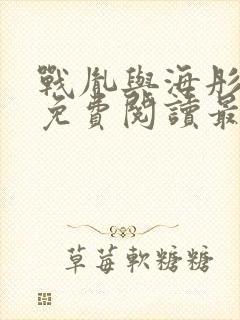 戰胤與海彤
免費閱讀最
草莓軟糖糖